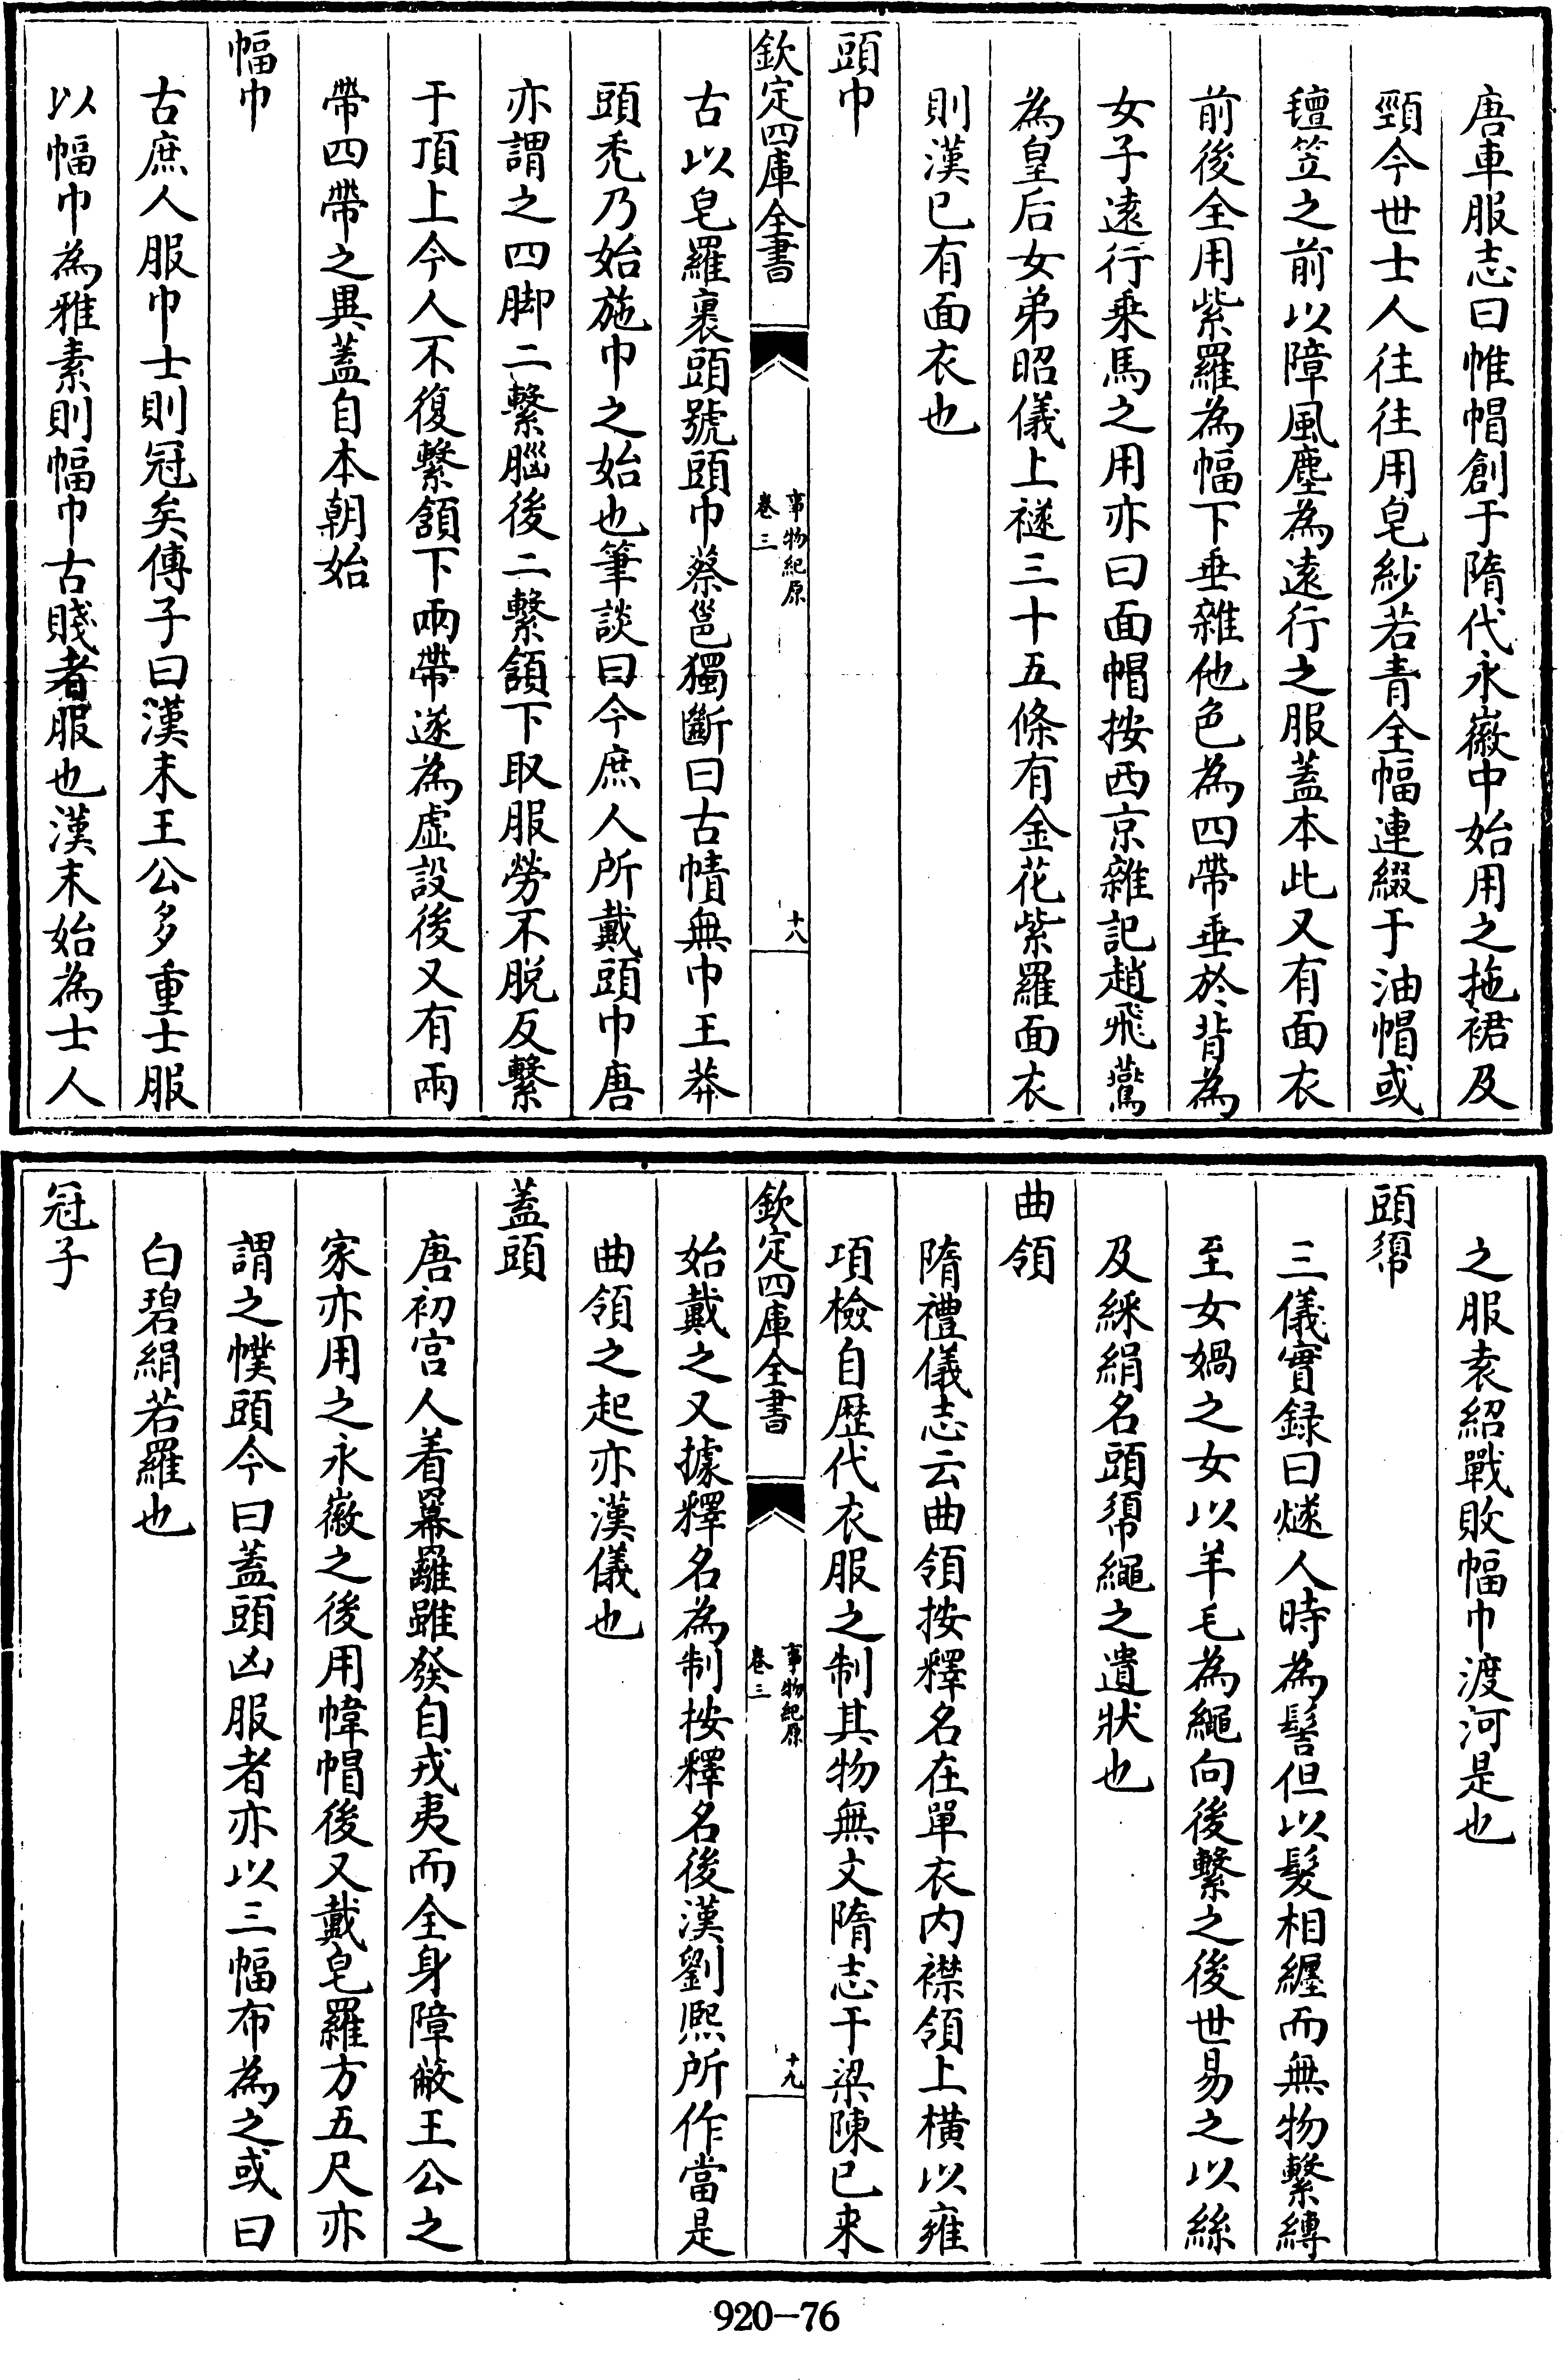 唐車服志曰帷帽創于隋代永徽中始用之拖裙及
頸今世士人往往用皂紗若青全幅連綴于油帽或
氊笠之前以障風塵為遠行之服蓋本此又有面衣
前後全用紫羅為幅下垂雜他色為四帶垂於背為
女子遠行乗馬之用亦曰面帽按西京雜記趙飛鷰
為皇后女弟昭儀上襚三十五條有金花紫羅面衣
則漢已有面衣也
頭巾
欽定四庫全書
事物紀原
卷三
十八
古以皂羅裹頭號頭巾蔡邕獨斷曰古幘無巾王莽
頭禿乃始施巾之始也筆談曰今庶人所戴頭巾唐
亦謂之四脚二繫腦後二繫頷下取服勞不脱反繫
于頂上今人不復繫頷下兩帶遂為虛設後又有兩
帶四帶之異蓋自本朝始
幅巾
古庶人服巾士則冠矣傳子曰漢末王公多重士服
以幅巾為雅素則幅巾古賤者服也漢末始為士人
之服袁紹戰敗幅巾渡河是也
頭𢄼
三儀實録曰燧人時為髻但以髮相纒而無物繫縛
至女媧之女以羊毛為繩向後繫之後世易之以絲
及綵絹名頭𢄼繩之遺狀也
曲領
隋禮儀志云曲領按釋名在單衣内襟領上横以雍
項檢自歴代衣服之制其物無文隋志于梁陳已来
欽定四庫全書
事物紀原
卷三
十九
始戴之又據釋名為制按釋名後漢劉熈所作當是
曲領之起亦漢儀也
蓋頭
唐初宫人着羃䍦雖發自戎夷而全身障蔽王公之
家亦用之永徽之後用幃帽後又戴皂羅方五尺亦
謂之幞頭今曰蓋頭凶服者亦以三幅布為之或曰
白碧絹若羅也
冠子
920-76